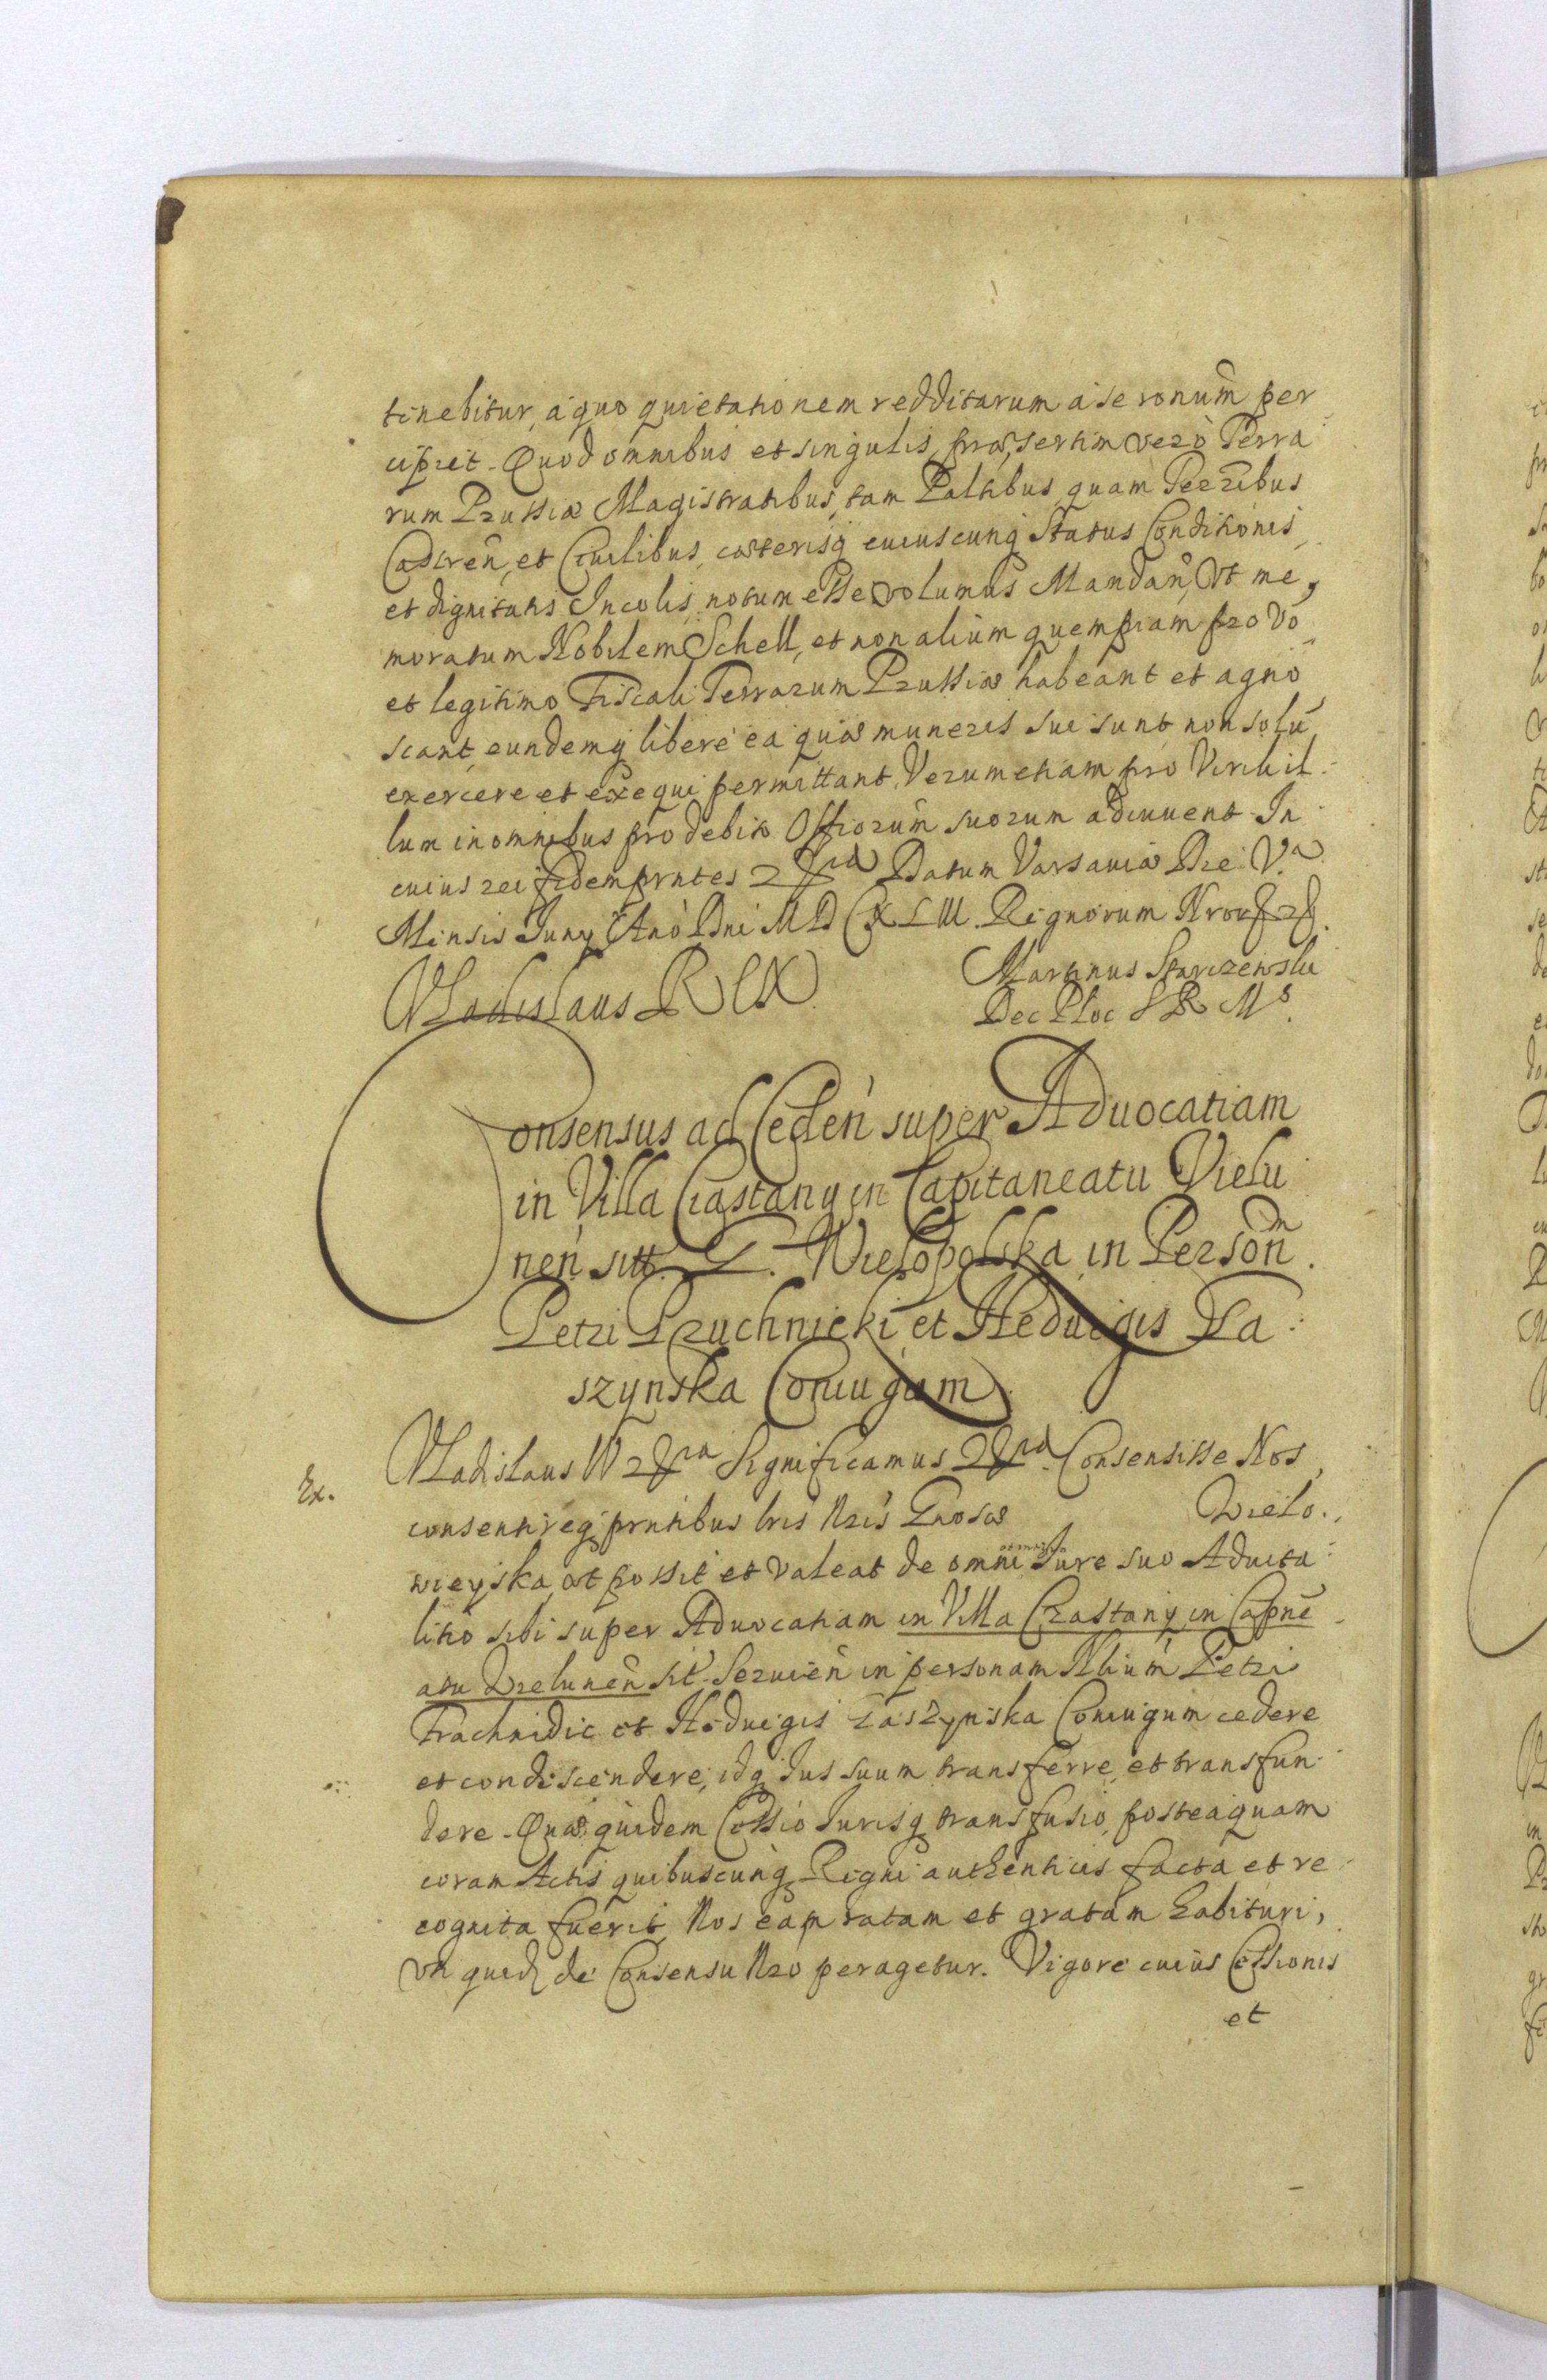 tinebitur, a quo quietationem redditarum a se ronum per
cipiet. Quod omnibus et singulis, præsertim verò Terra
rum Prussiæ Magistratibus, tam Paltibus quam Terribus
Castren, et Civilibus, cæterisq cuiuscunq Status Conditionis,
et dignitatis Incolis, notum esse volumus Mandan, Vt me,
moratum Nobilem Schell, et non alium quempiam pro vo
et legitimo Fiscali Terrarum Prussiæ habeant et agno
scant, eundemq liberè ea quæ muneris sui sunt non solu
exercere et exequi permittant, Verumetiam pro Virili il:
lum in omnibus pro debito Officiorum suorum adiuvent. In
cuius rei fidem prntes Datum Varsaviæ Die V.a
Mensis Juny Ano Dni MD CXLIII. Regnorum Nror
Vladislaus REX Martinus Starczewski
Dec Ploc S R Ms.
Consensus ad Ceden super Advocatiam
in Villa Ciastany in Capitaneatu Vielu
nen sitt. G. Wielopolska in Person.
Petri Pruchnicki et Heduigis Ta:
szynska Coniugum
Ex. Vladislaus IV Significamus Consensisse Nos,
consentireq prntibus lris Nris Gnosæ Wielo.,
wieyska, vt possit et valeat de omni Jure suo Advita:
litio sibi super Advocatiam in Villa Czastany in Capne
atu Wielunen sit. Servien in personam Nlium Petri
Prachnidic et Heduigis Taszynska Coniugum cedere
et condescendere, idq Jus suum transferre, et transfun:
dere. Quæ quidem Cessio Jurisq transfusio, posteaquam
coram Actis quibuscunq Regni authenticis facta et re
cognita fuerit, Nos eam ratam et gratam habituri,
vti quid de Consensu Nro peragetur. Vigore cuius Cessionis
et